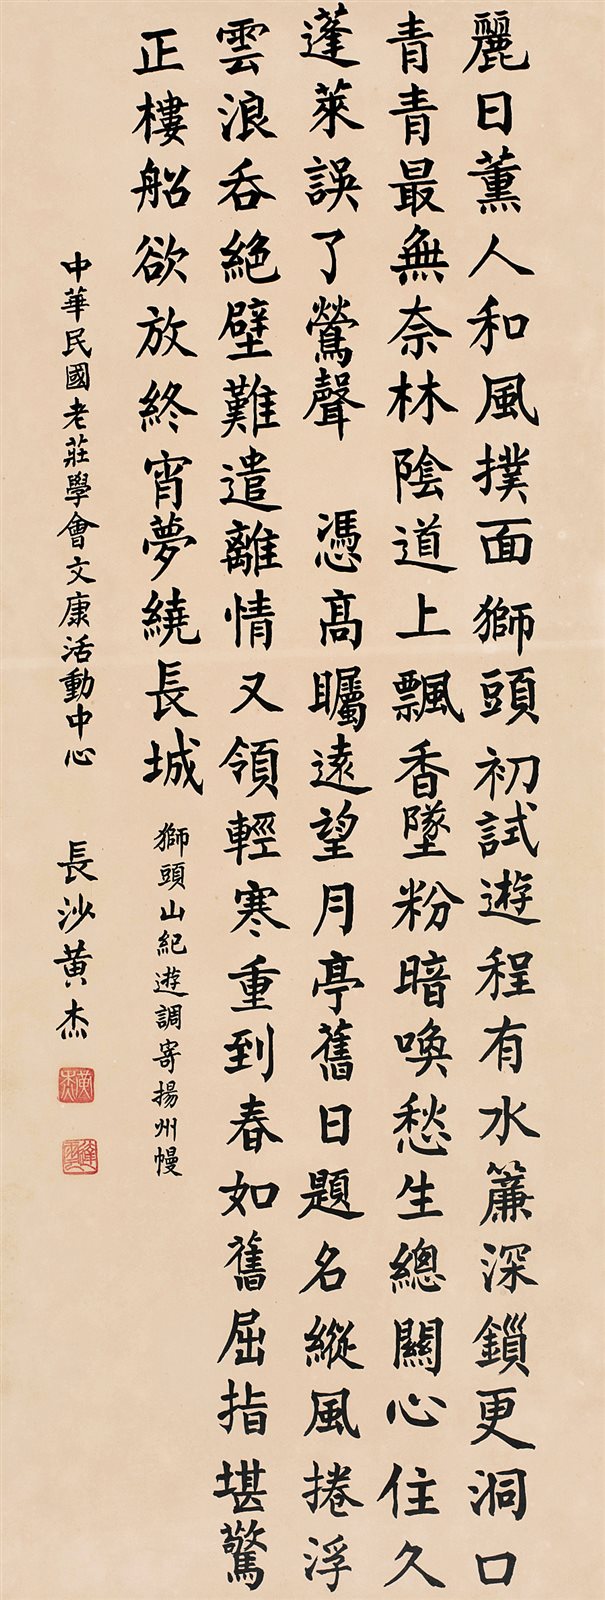 麗日薰人和風撲面獅頭初試遊程有水簾深鎖更洞口
青青最無奈林陰道上飄香墜粉暗喚愁生總關心住久
蓬萊誤了鶯聲　憑高矚遠望月亭舊日題名縱風捲浮
雲浪吞絕壁難遣離情又領輕寒重到春如舊屈指堪驚
正樓船欲放終宵夢繞長城
獅頭山紀遊調寄揚州幔
中華民國老莊學會文康活動中心　長沙黃杰
黃杰
達雲